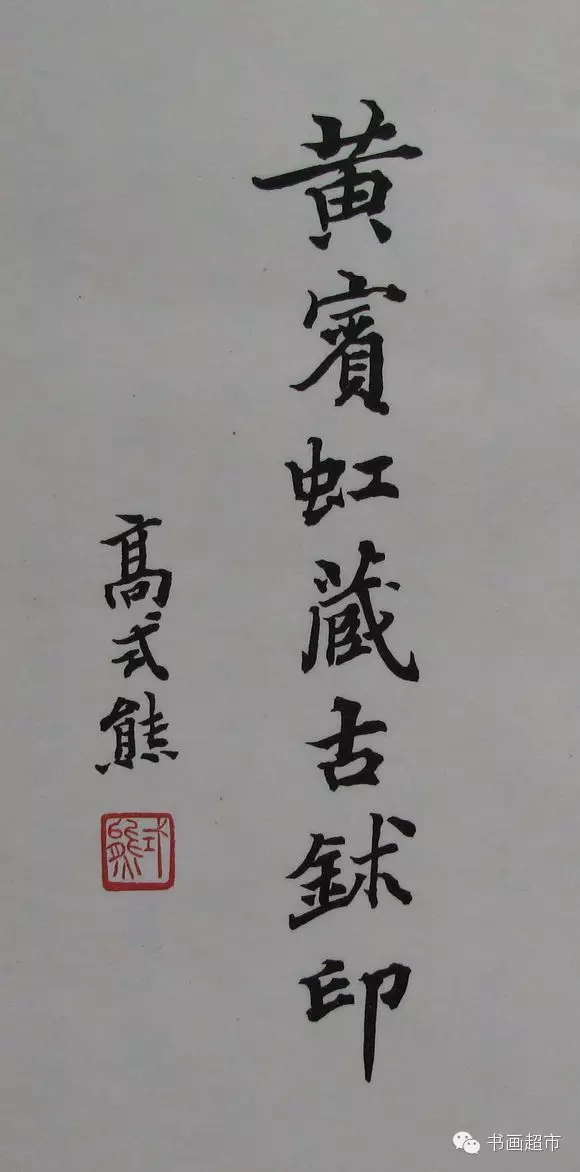 黄賓虹蔵古鉥印
髙式熊
式熊
书画超市